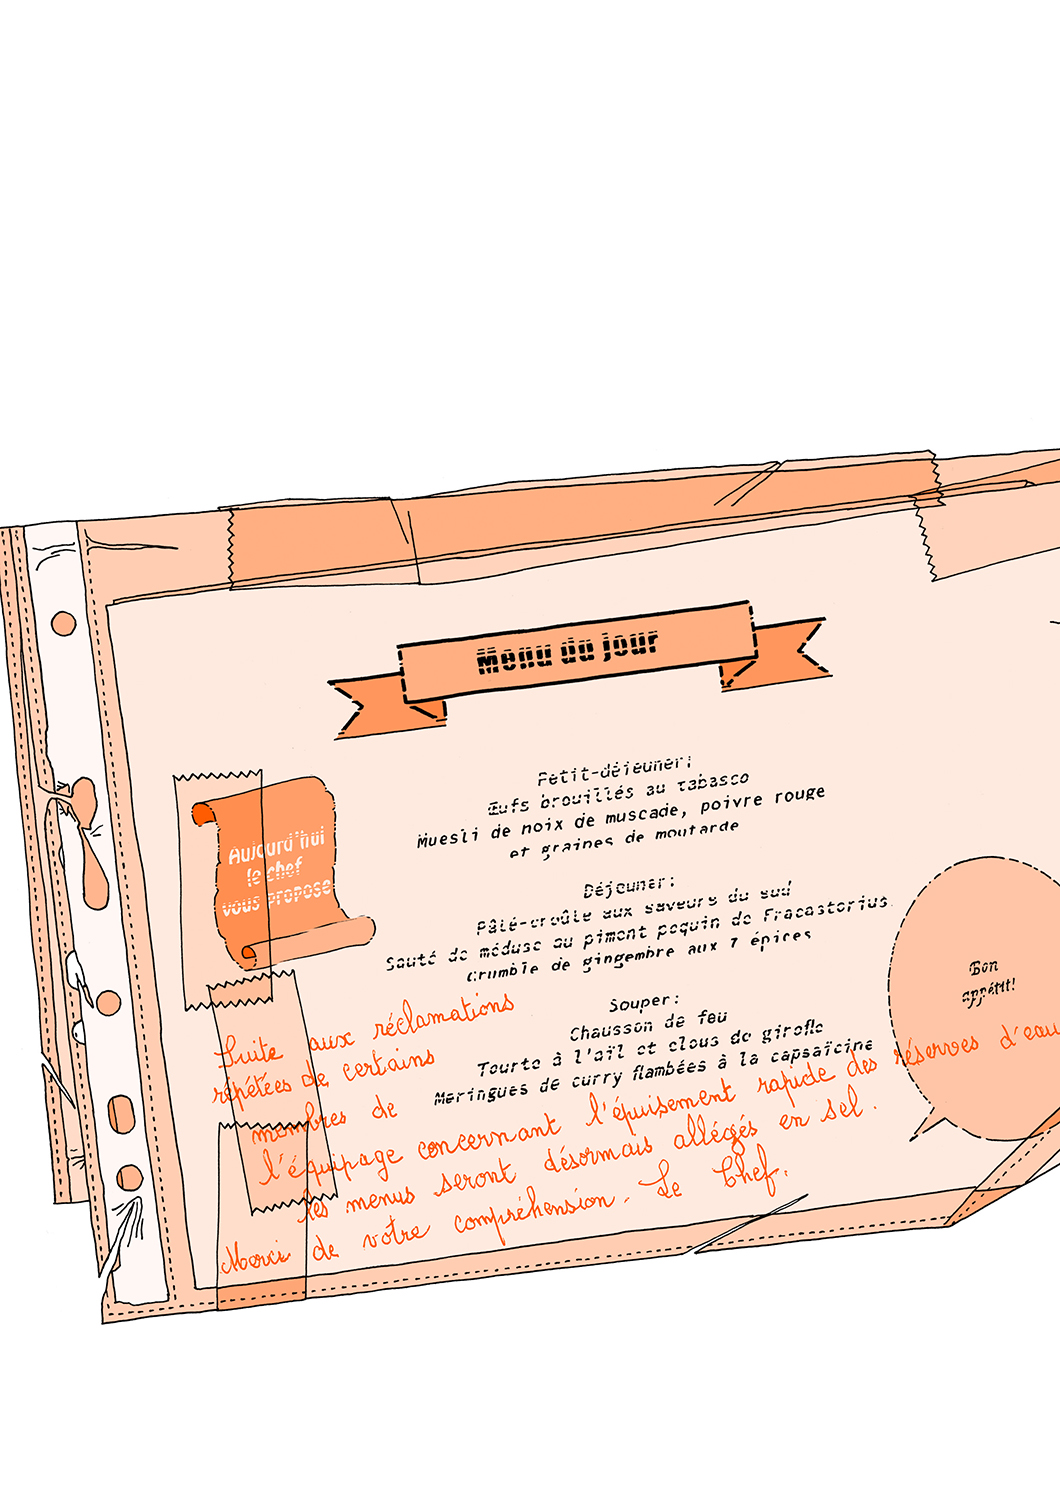 Menu du jour
Aujourd'hui
le chef
vous propose
Petit-déjeuner:
Œufs brouillés au tabasco
Muesli de noix de muscade, poivre rouge
et graines de moutarde
Déjeuner:
Pâté-croûte aux saveurs du sud
Sauté de méduse au piment pequin de Fracastorius.
Crumble de gingembre aux 7 épices
Souper:
Chausson de feu
Tourte à l'ail et clous de girofle
Meringues de curry flambées à la capsaïcine
Bon
appétit!
Suite aux réclamations
répétées de certains
membres de
l'équipage concernant l'épuisement rapide des réserves d'eau
les menus seront désormais allégés en sel.
Merci de votre compréhension. Le Chef.